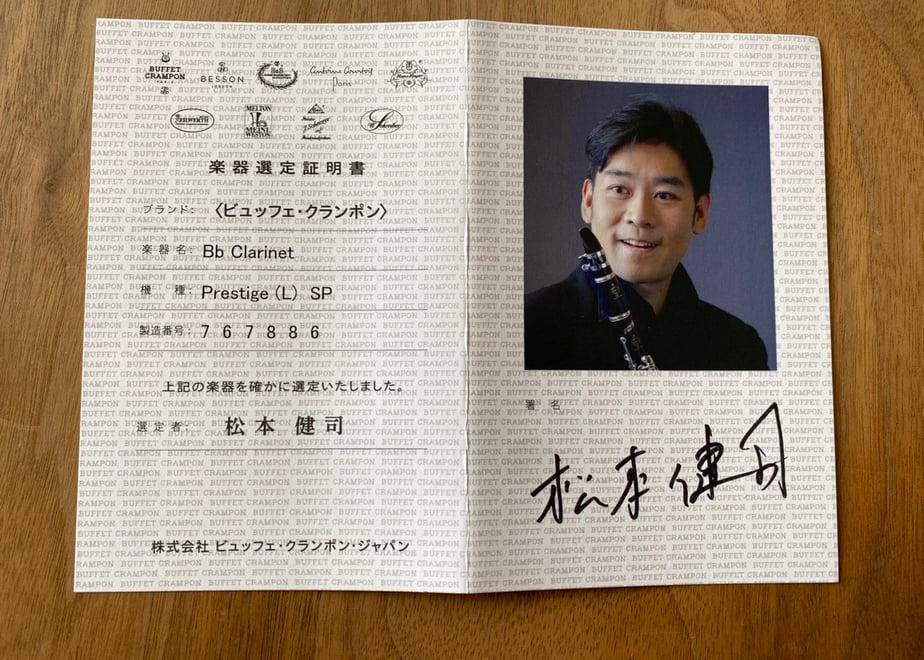 BUFFET
CRAMPON
PARIS
BESSON
LONDON
B&S
Antoine Courtois
Paris
KEILWERTH
MELTON
MEINL
WESTON
J. Scherzer
W. Schreiber
楽器選定証明書
ブランド: 〈ビュッフェ・クランポン〉
楽器名: Bb Clarinet
機 種: Prestige (L) SP
製造番号: 767886
上記の楽器を確かに選定いたしました。
選定者: 松本 健司
株式会社 ビュッフェ・クランポン・ジャパン
署名
松本健司
BUFFET CRAMPON